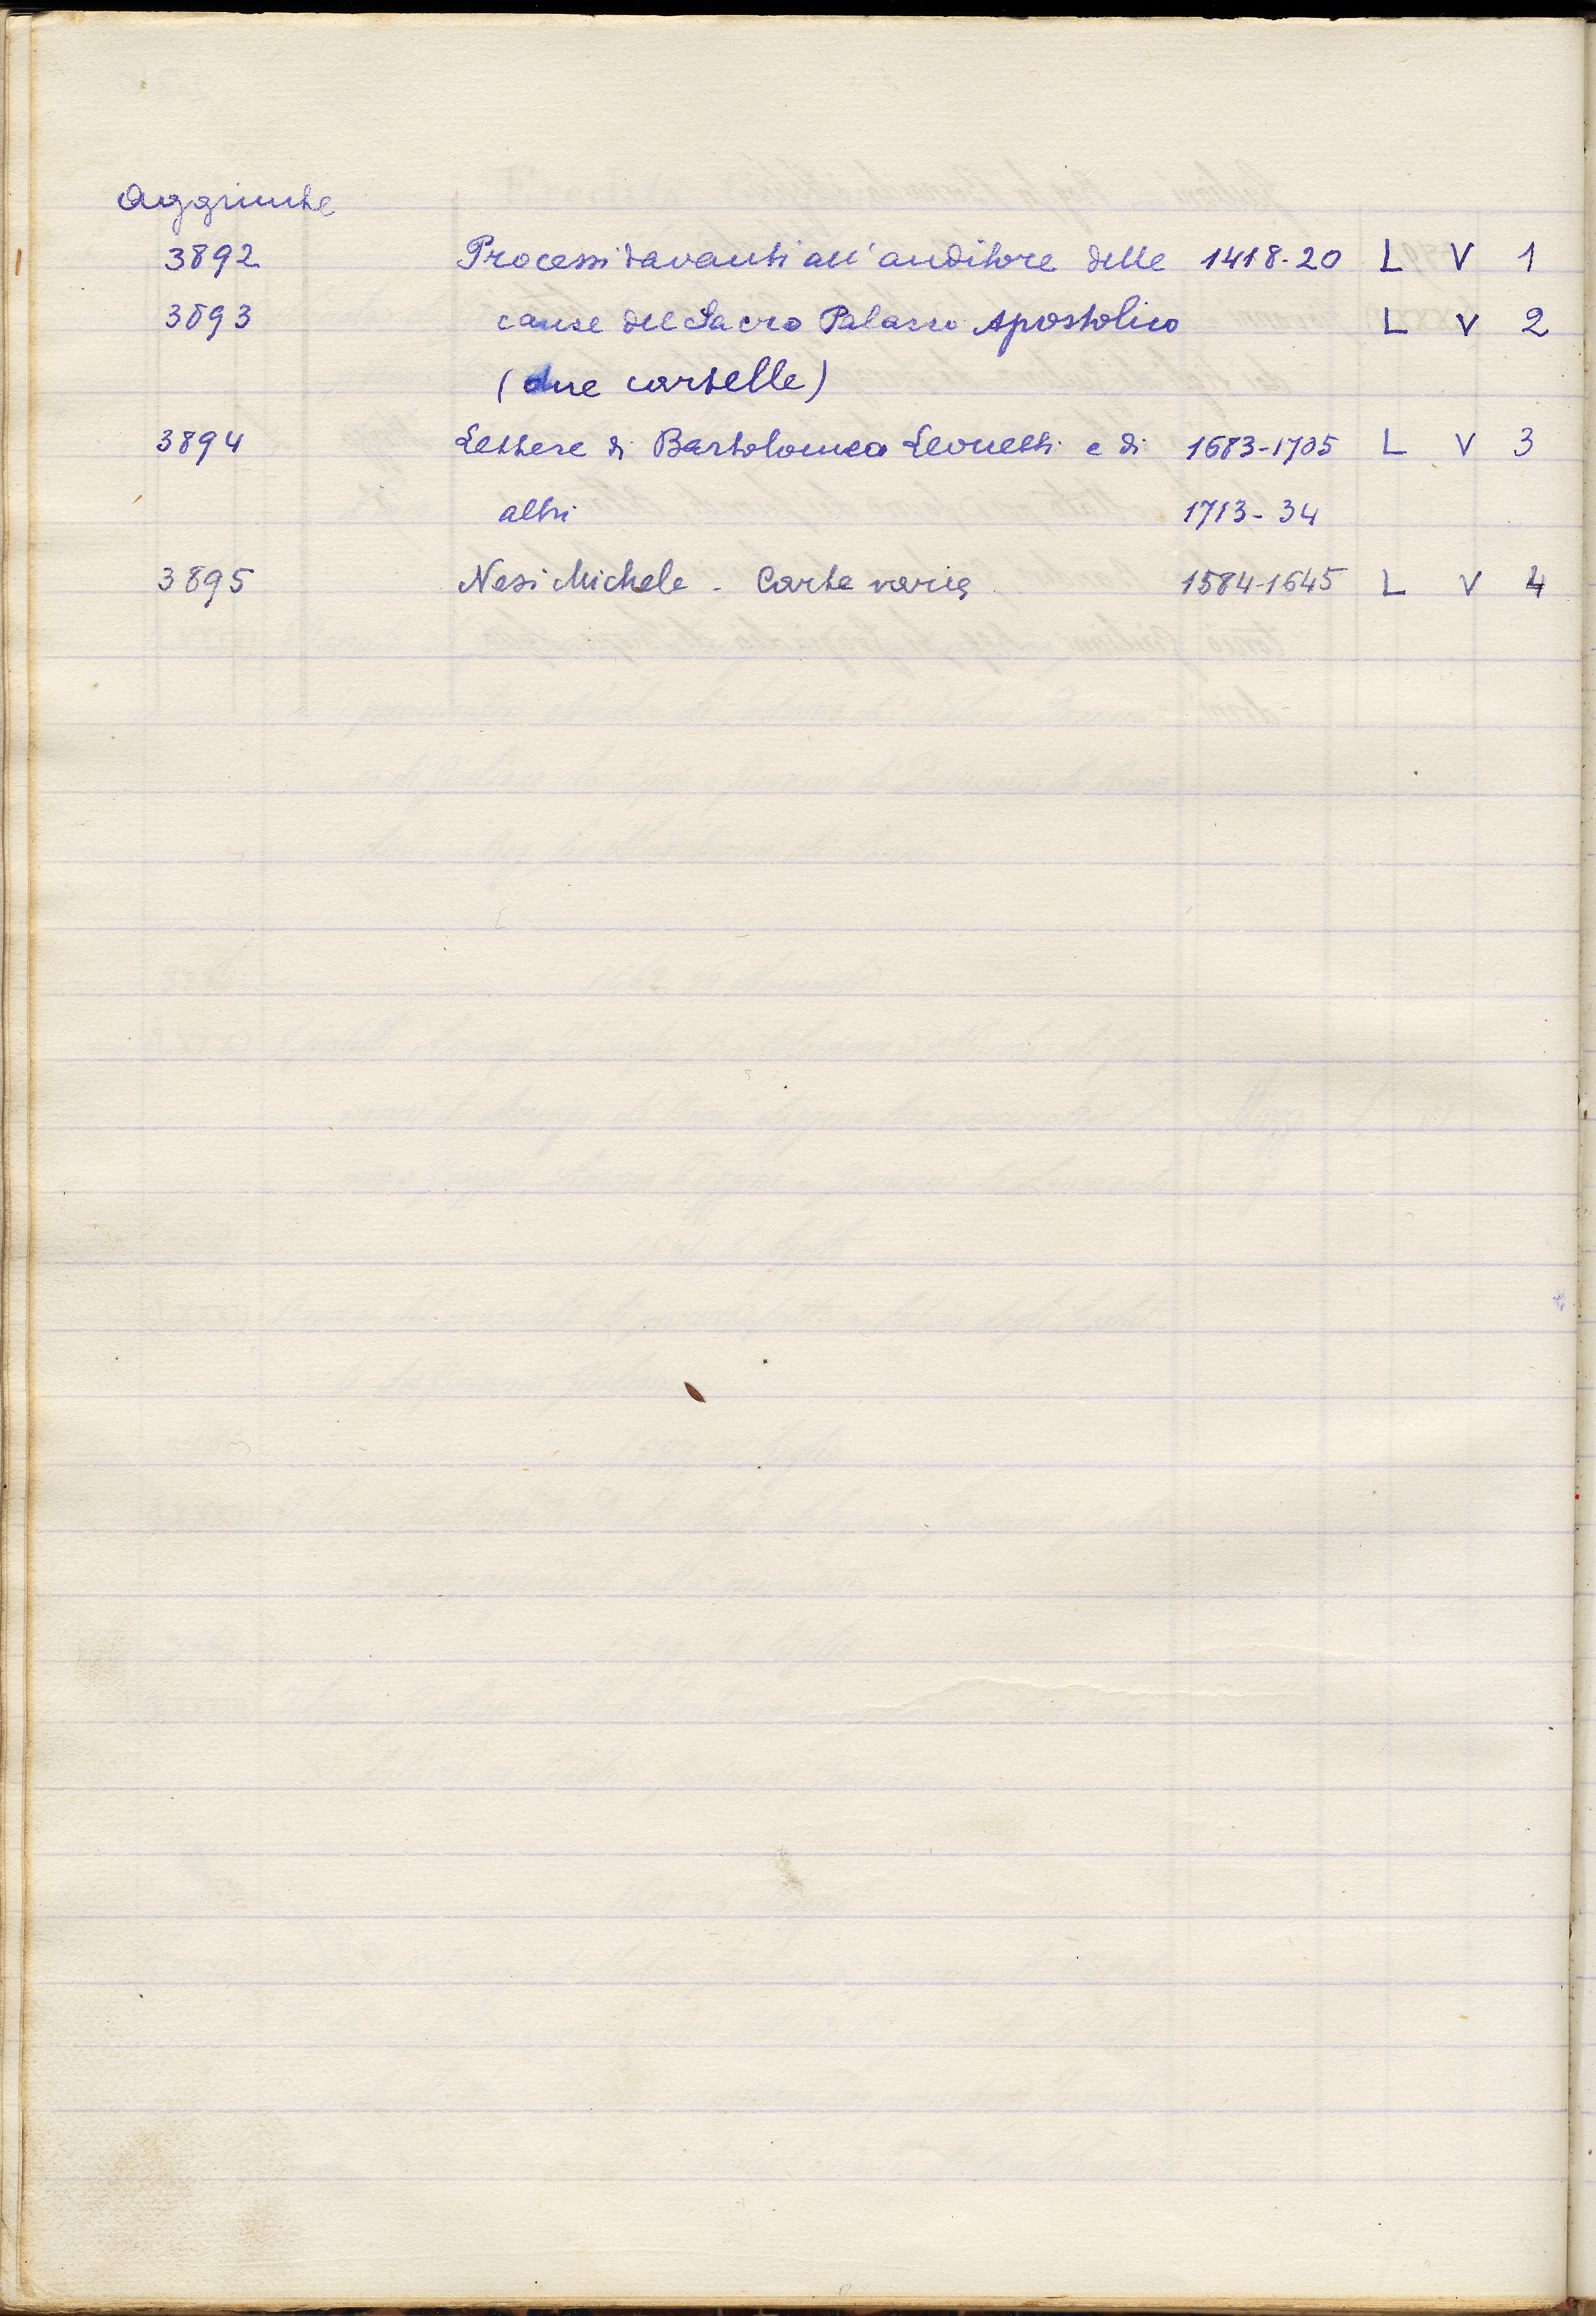 Aggiunte
3892 Processi davanti all'auditore delle 1418-20 L V 1
3893 cause del Sacro Palazzo Apostolico L V 2
(due cartelle)
3894 Lettere di Bartolomeo Leonetti e di 1683-1705 L V 3
altri 1713-34
3895 Nesi Michele - Carte varie 1584-1645 L V 4